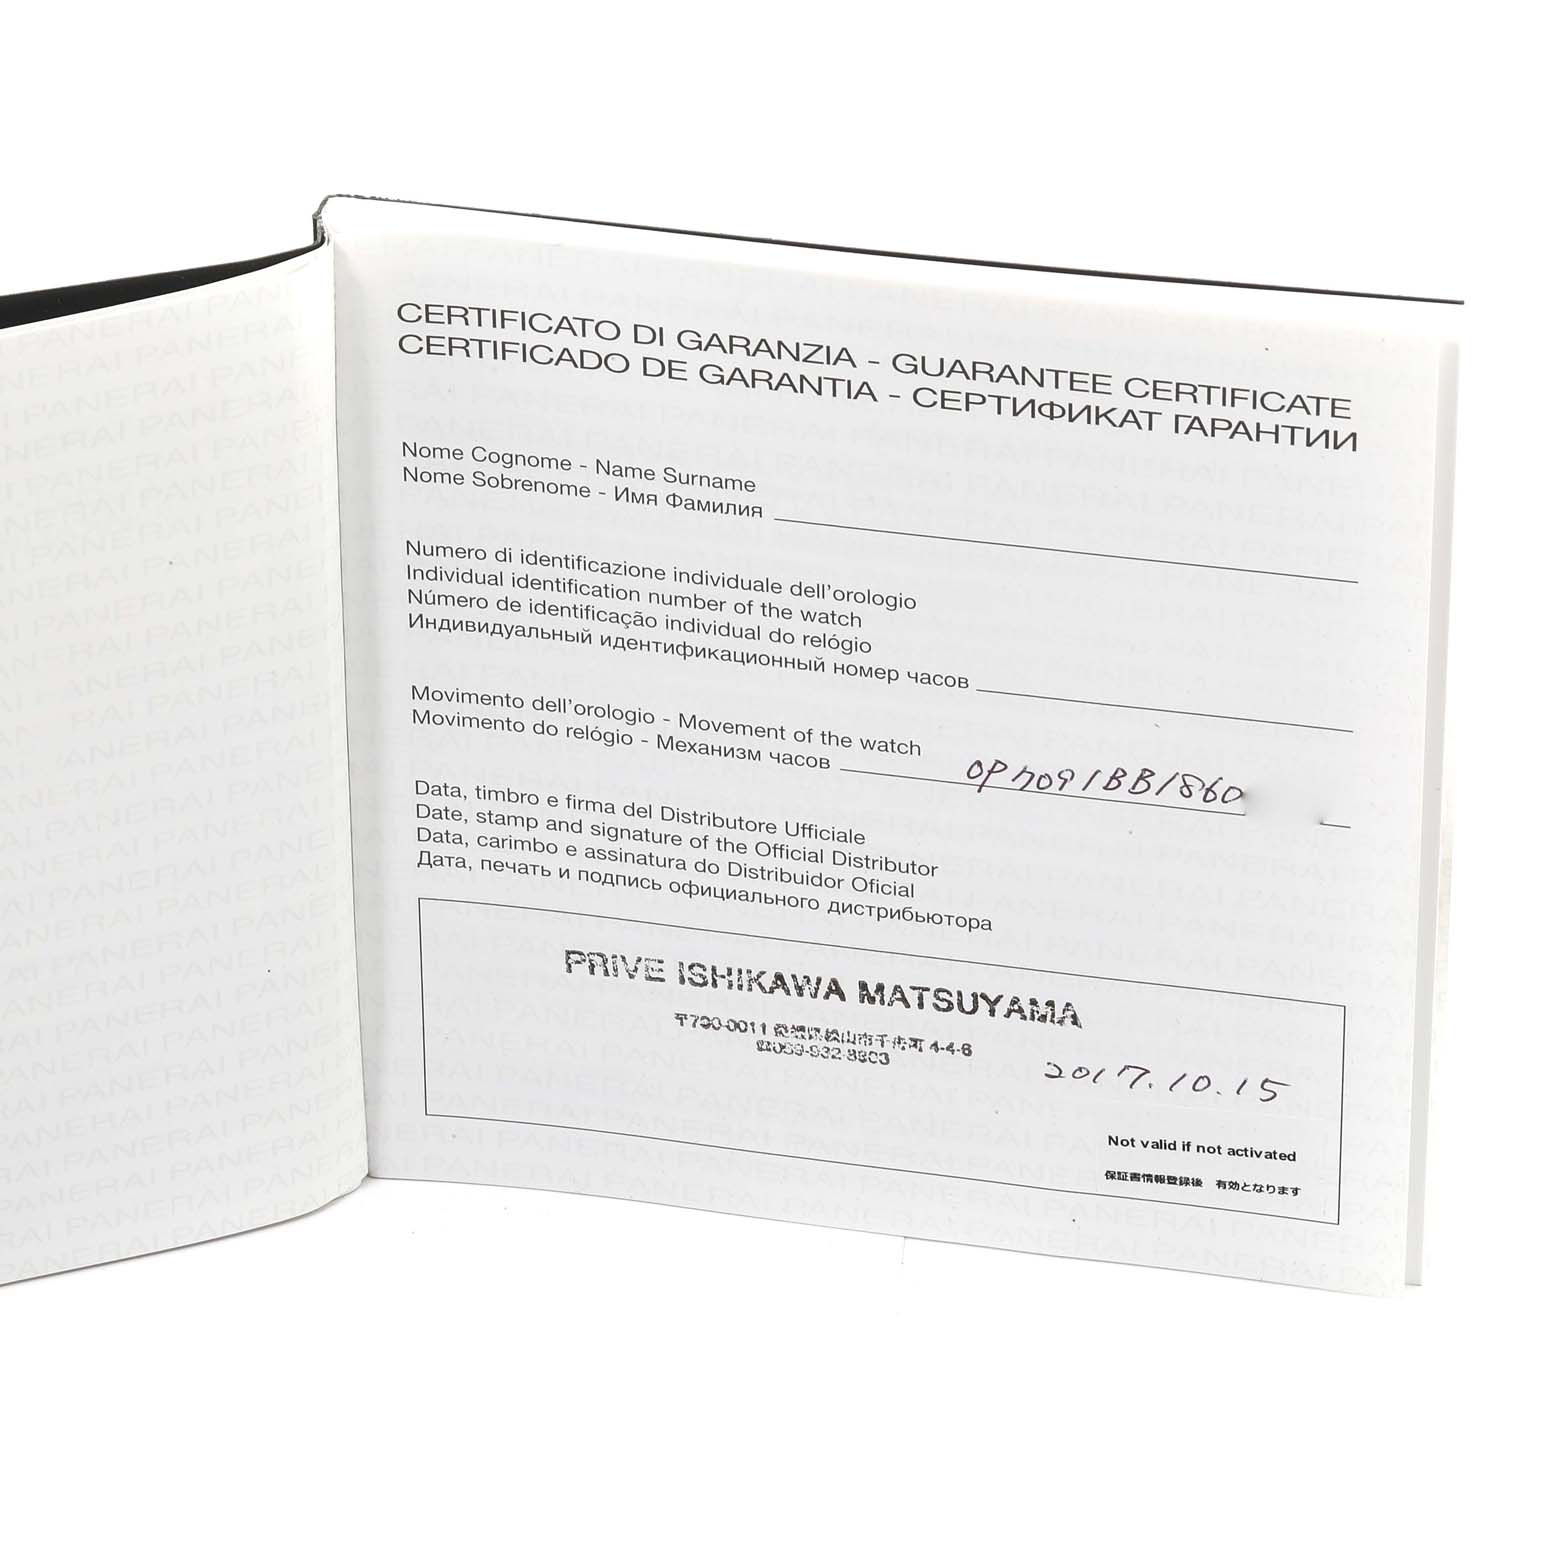 CERTIFICATO DI GARANZIA - GUARANTEE CERTIFICATE
CERTIFICADO DE GARANTIA - СЕРТИФИКАТ ГАРАНТИИ
Nome Cognome - Name Surname
Nome Sobrenome - Имя Фамилия
Numero di identificazione individuale dell'orologio
Individual identification number of the watch
Número de identificação individual do relógio
Индивидуальный идентификационный номер часов
Movimento dell'orologio - Movement of the watch
Movimento do relógio - Механизм часов OP7091BB1860
Data, timbro e firma del Distributore Ufficiale
Date, stamp and signature of the Official Distributor
Data, carimbo e assinatura do Distribuidor Oficial
Дата, печать и подпись официального дистрибьютора
PRIVE ISHIKAWA MATSUYAMA
〒790-0011 愛媛県松山市千舟町 4-4-6
2017.10.15
Not valid if not activated
保証書情報登録後 有効となります